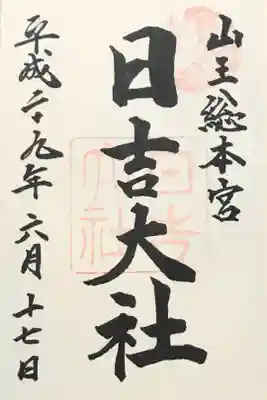 山王総本宮
日吉大社
平成二十九年六月十七日
日吉大社